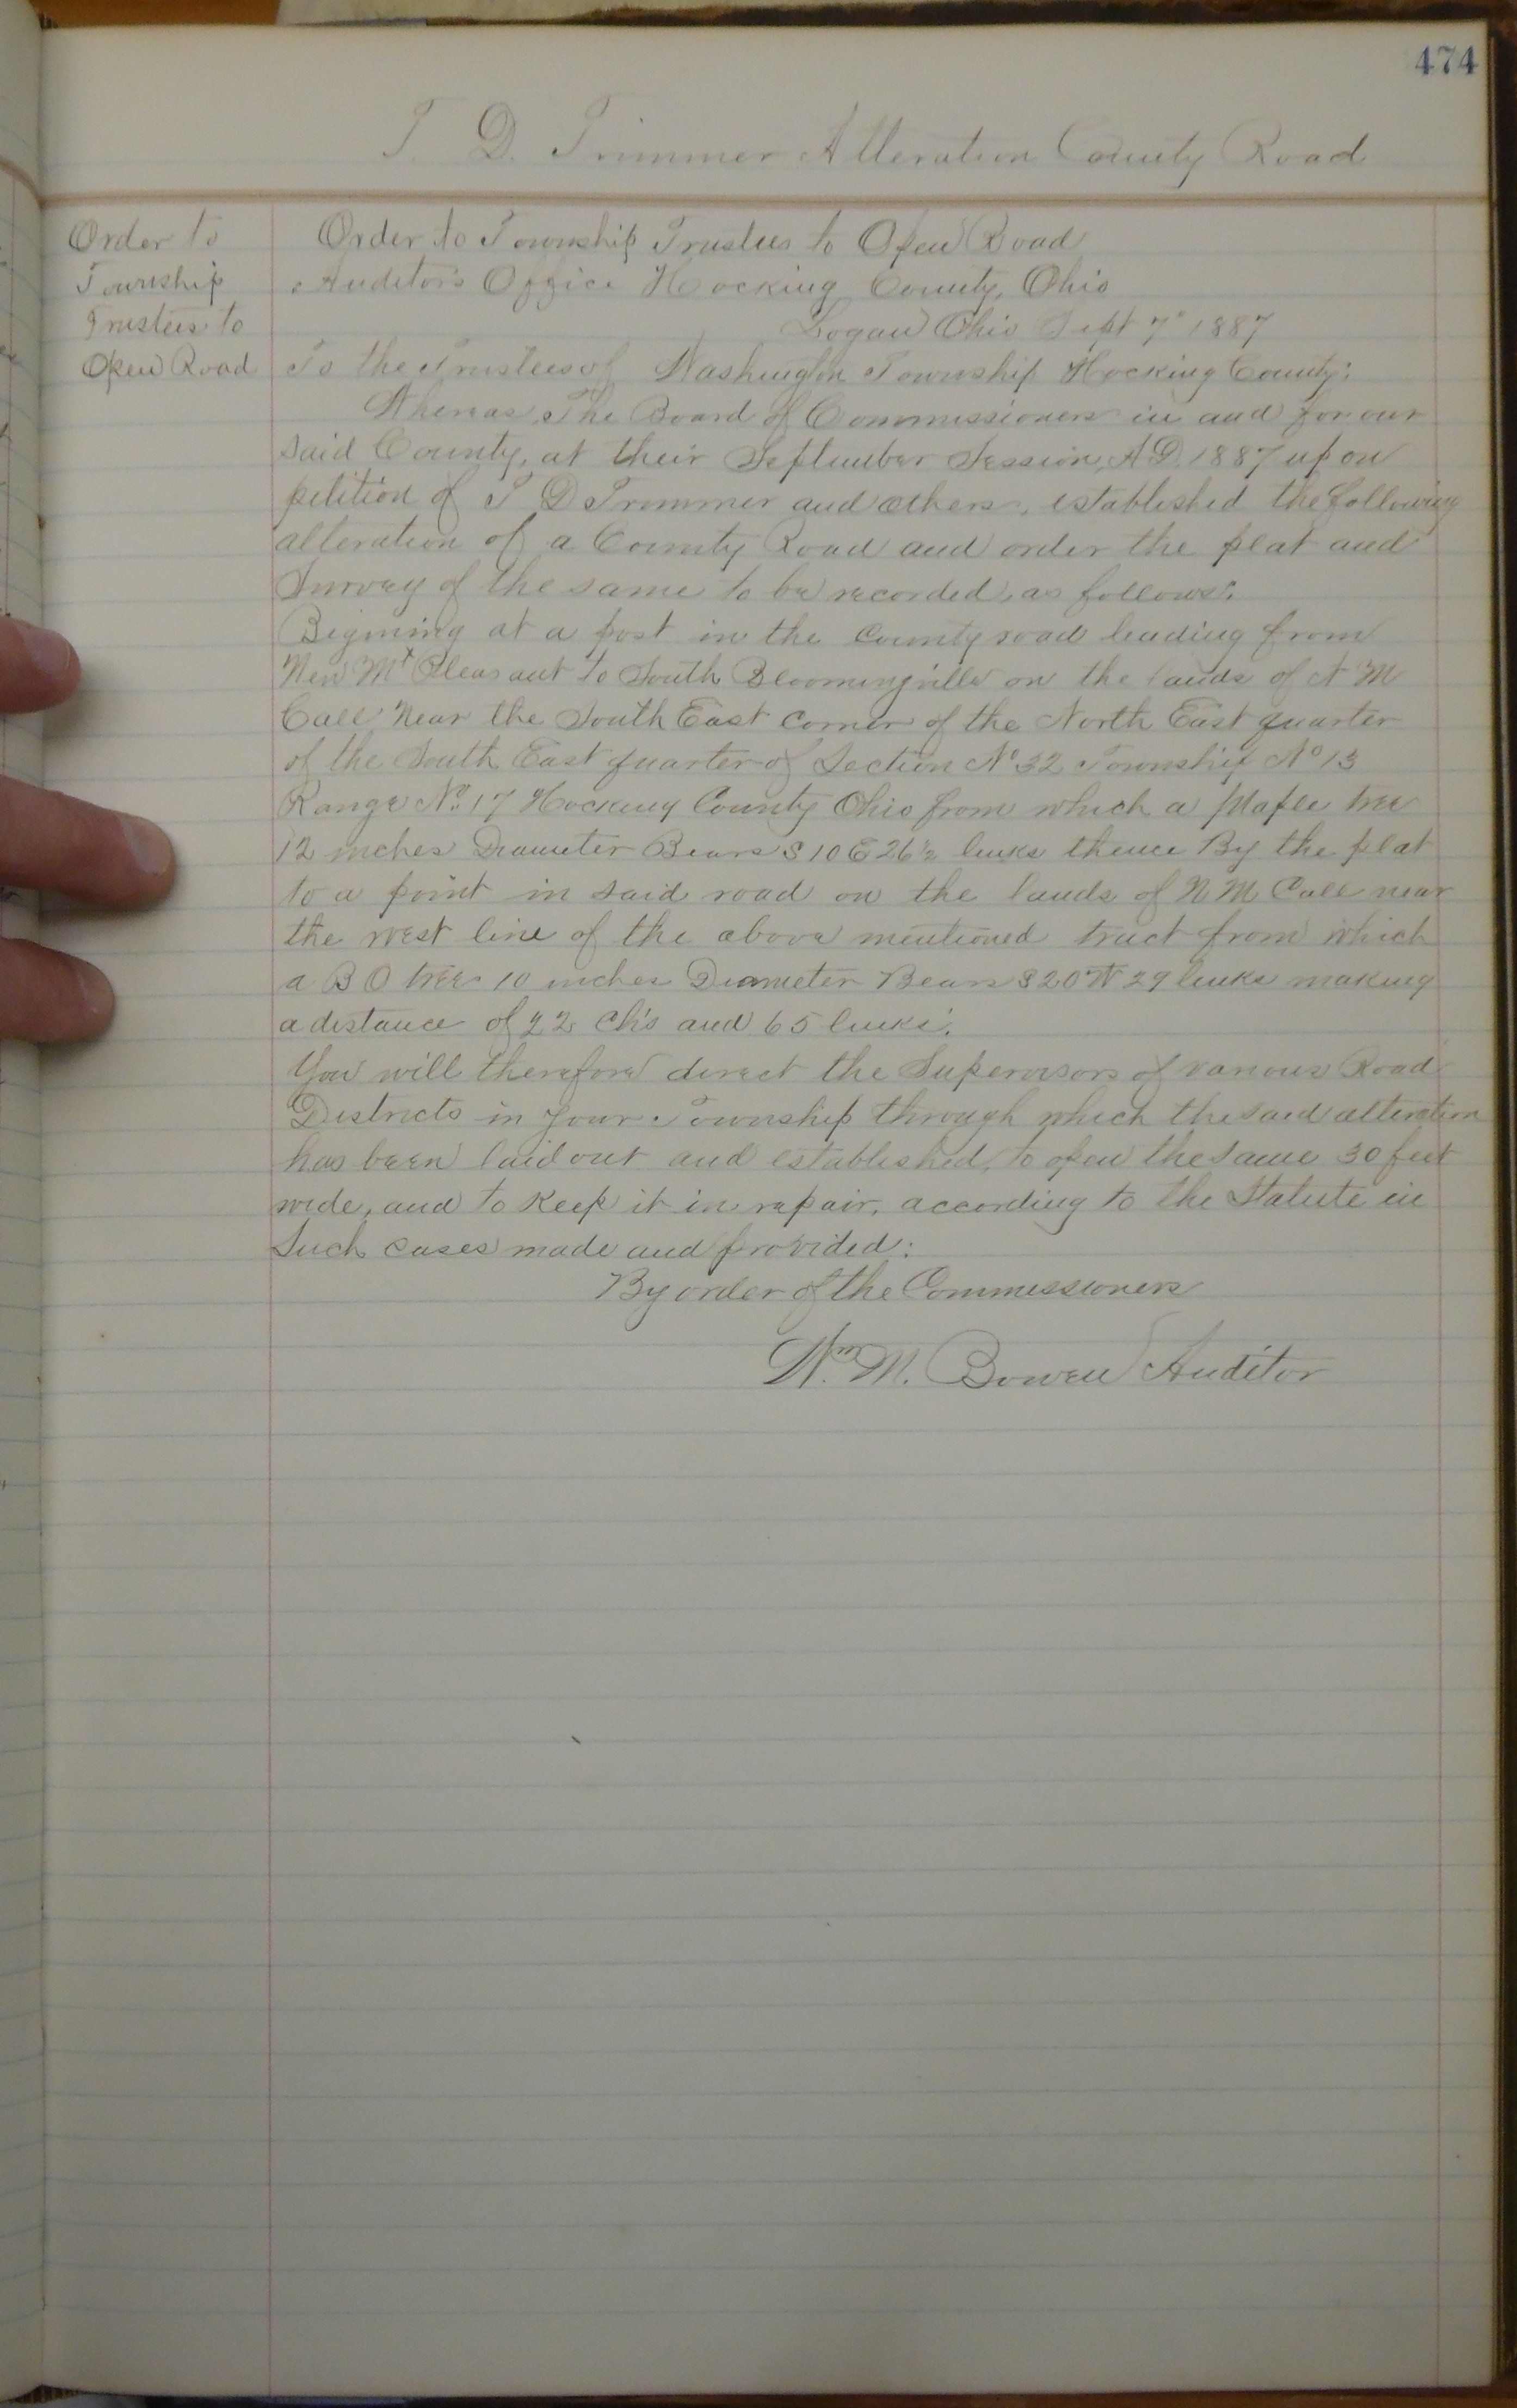 474
T. D. Trimmer Alteration County Road
Order to
Township
Trustees to
Open Road
Order to Township Trustees to Open Road
Auditor's Office Hocking County, Ohio
Logan Ohio Sept 7" 1887
To the Trustees of Washington Township Hocking County:
Whereas, The Board of Commissioners in and for our
said County, at their September Session, A.D. 1887 upon
petition of T D Trimmer and others, established the following
alteration of a County Road and order the plat and
Survey of the same to be recorded, as follows:
Begining at a post in the County road leading from
New Mt Pleasant to South Bloomingville on the lands of N M
Call Near the South East corner of the North East quarter
of the South East quarter of Section No 32 Township No 13
Range No. 17 Hocking County Ohio from which a Maple tree
12 inches Diameter Bears S 10 E 26½ links thence By the plat
to a point in said road on the lands of N M Call near
the west line of the above mentioned tract from which
a B O tree 10 inches Diameter Bears S 20 W 29 links making
a distance of 22 ch's and 65 links.
You will therefore direct the Supervisors of various Road
Districts in your Township through which the said alteration
has been laid out and established, to open the same 30 feet
wide, and to Keep it in repair, according to the Statute in
Such cases made and provided:
By order of the Commissioners
Wm. M. Bowen Auditor